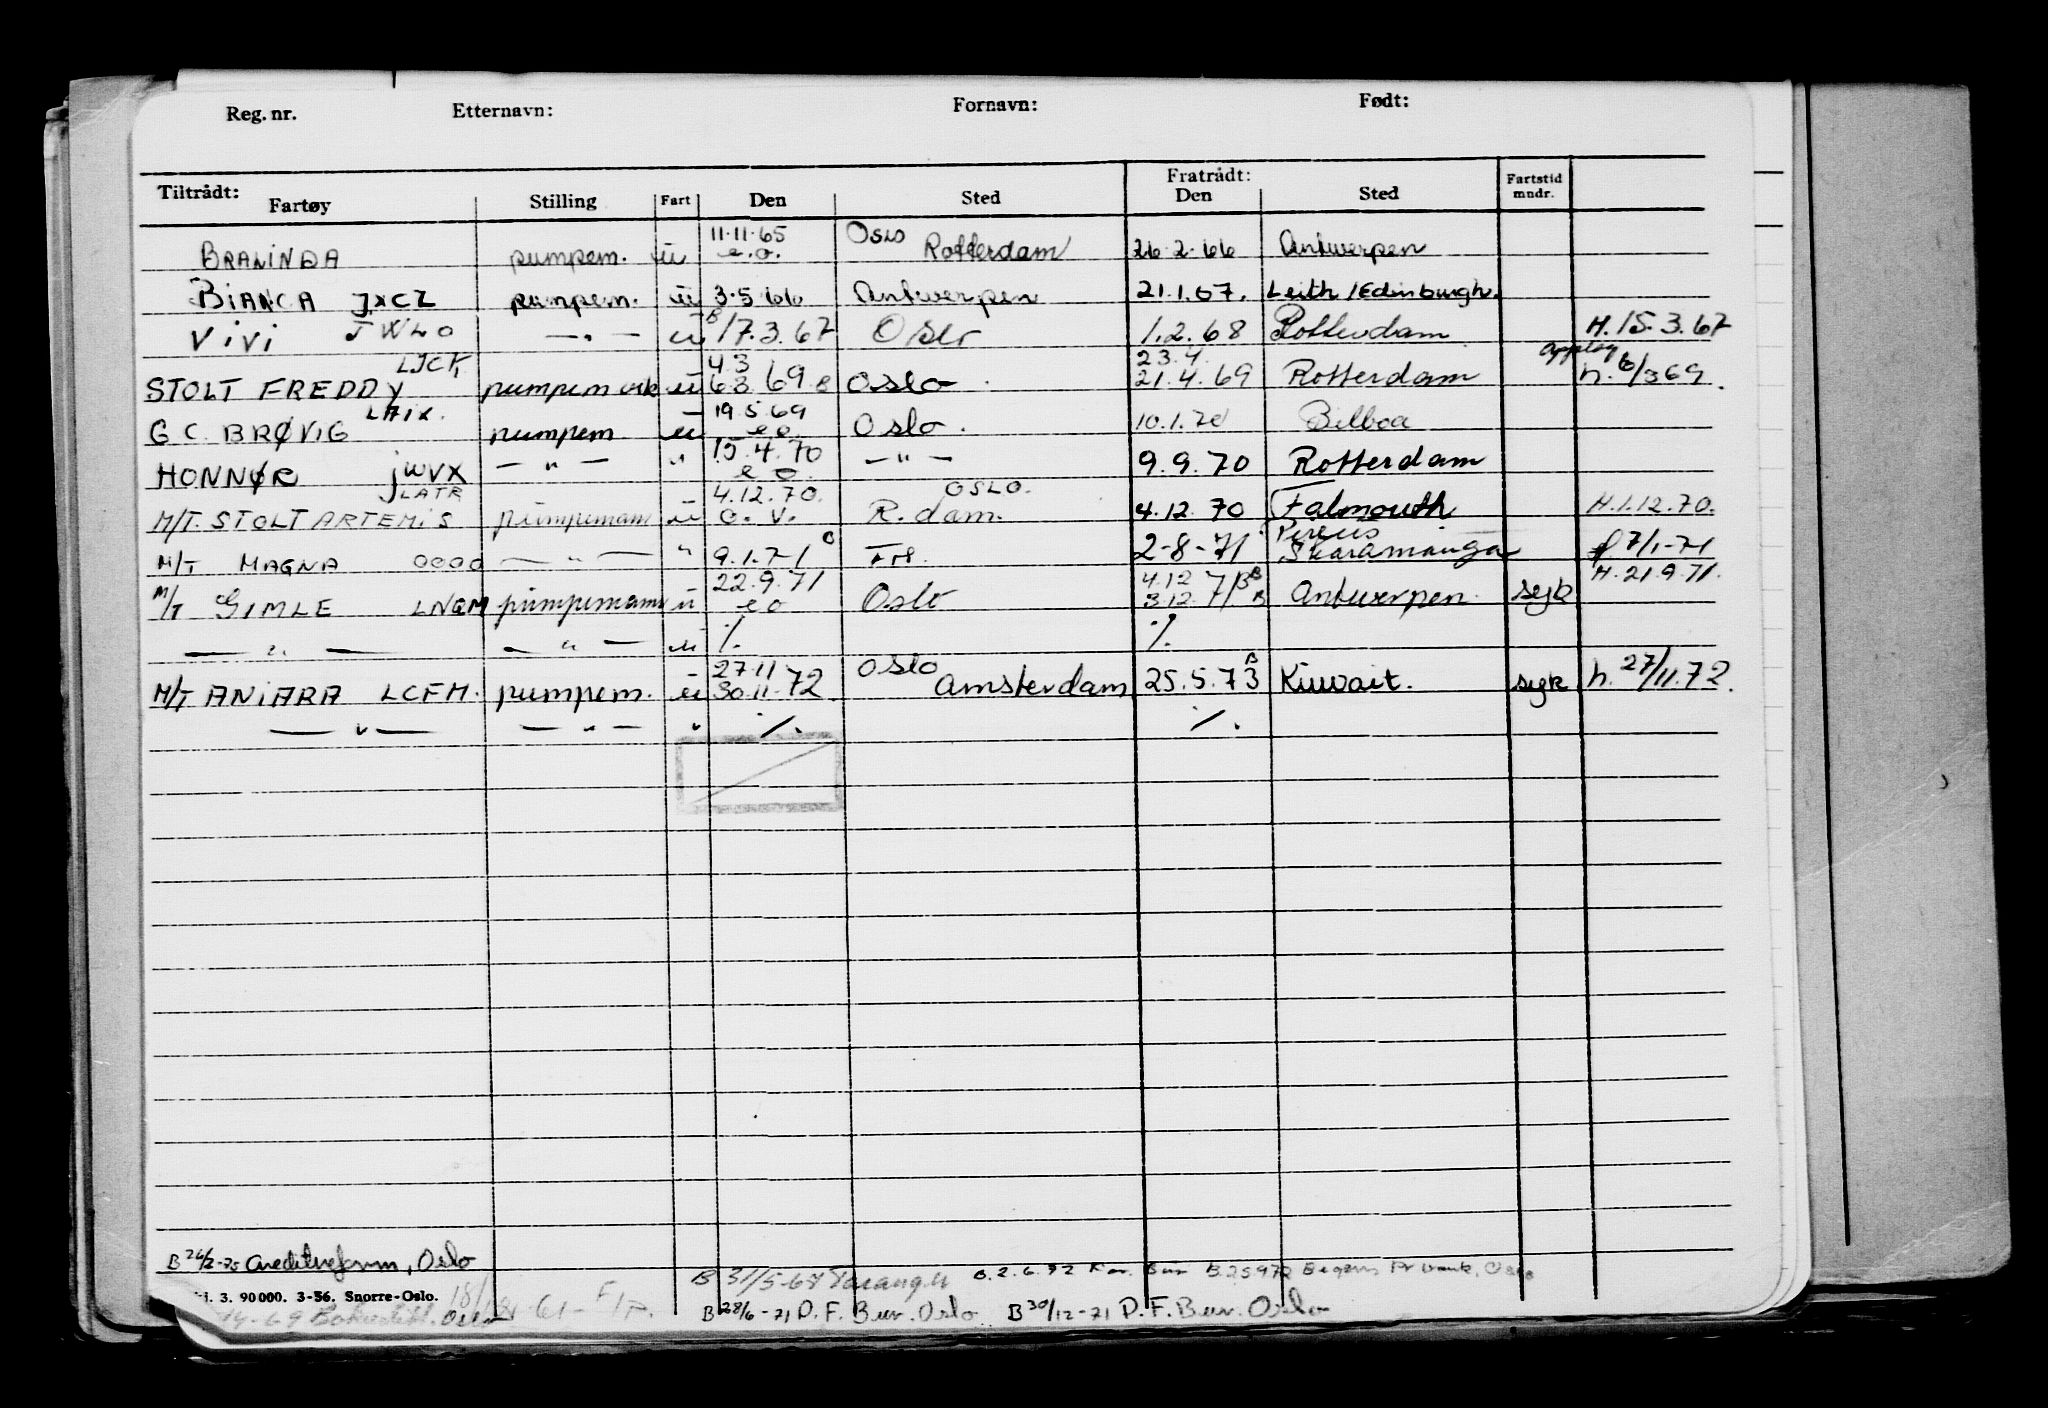 Reg. nr. Etternavn: Fornavn: Født:
Tiltrådt: Fratrådt: Fartstid
Fartøy Stilling Fart Den Sted Den Sted mndr.
11.11.65 Oslo
BRALINDA pumpem. u e.o. Rotterdam 26.2.66 Antwerpen
BIANCA JXCZ pumpem. u 3.5.66 Antwerpen 21.1.67. Leith/Edinburgh.
VIVI JWLO — " — u B 17.3.67 Oslo 1.2.68 Rotterdam H. 15.3.67
LJCK 4.3 23.4.
STOLT FREDDY pumpem u 6.3.69 Oslo 21.4.69 Rotterdam h. 6/3 69.
LAIX. 19.5.69
G C. BRØVIG pumpem u e.o. Oslo. 10.1.70 Bilboa
15.4.70
HONNØR JWVX — " — " e o — " — 9.9.70 Rotterdam
LATR 4.12.70. OSLO.
M/T. STOLT ARTEMIS pumpemann u o.v. R.dam. 4.12.70 Falmouth H.1.12.70.
Pireus
M/T MAGNA OOOO — " — " 9.1.71 2-8-71 Skaramanga 7/1-71
22.9.71 4.12 H. 21.9.71.
M/T GIMLE LNGM pumpemann u e o Oslo 3.12.71 B Antwerpen. syk
— " — — " — u ./. ./.
27.11 Oslo
M/T ANIARA LCFM. pumpem. u 30.11.72 Amsterdam 25.5.73 B Kuwait. syk h. 27/11.72.
— " — — " — " ./. ./.
B 26/2-75 Creditreform, Oslo
B 31/5-67 B.2.6.72 B.25972
3. 90 000. 3-56. Snorre-Oslo.
B 28/6-71 P.F. Bur. Oslo B 30/12-71 P.F. Bur. Oslo